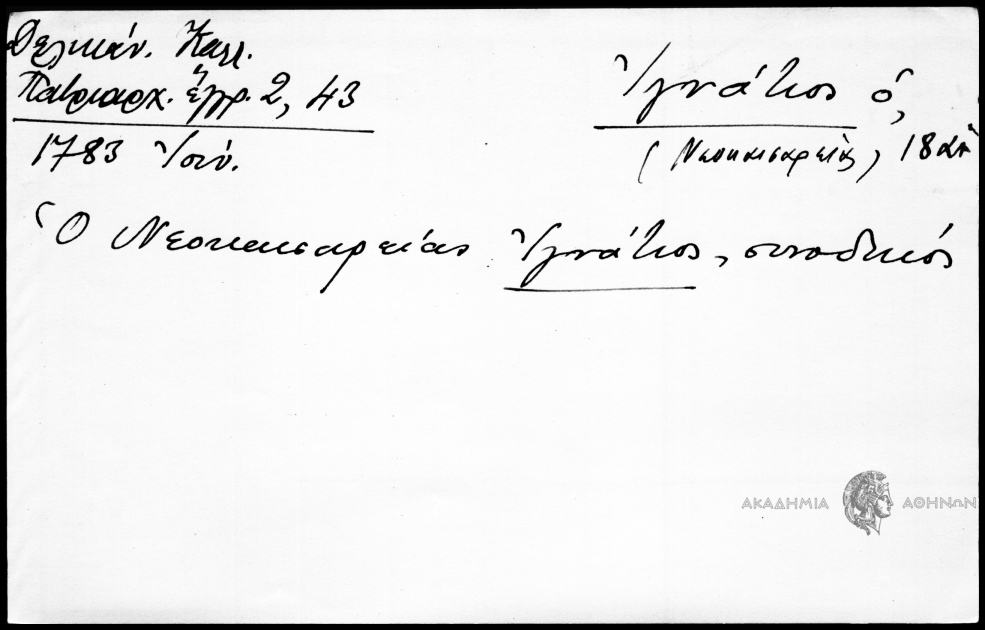 Δελικάν. Καλλ.
Πατριαρχ. ἔγγρ. 2, 43
1783 Ἰούν.
Ἰγνάτιος ὁ,
(Νεοκαισαρείας, 18
Ὁ Νεοκαισαρείας Ἰγνάτιος, συνοδικός
ΑΚΑΔΗΜΙΑ ΑΘΗΝΩΝ